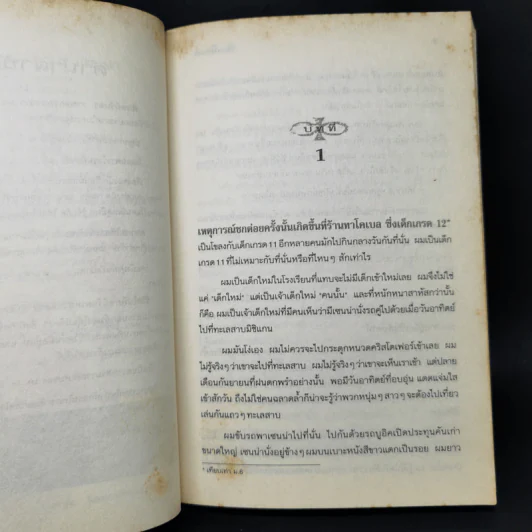 บทที่
1
เหตุการณ์ชกต่อยครั้งนั้นเกิดขึ้นที่ร้านทาโคเบล ซึ่งเด็กเกรด 12*
เป็นโขลงกับเด็กเกรด 11 อีกหลายคนมักไปกินกลางวันกันที่นั่น ผมเป็นเด็ก
เกรด 11 ที่ไม่เหมาะกับที่นั่นหรือที่ไหนๆ สักเท่าไร
ผมเป็นเด็กใหม่ในโรงเรียนที่แทบจะไม่มีเด็กเข้าใหม่เลย ผมจึงไม่ใช่
แค่ 'เด็กใหม่' แต่เป็นเจ้าเด็กใหม่ 'คนนั้น' และที่หนักหนาสาหัสกว่านั้น
ก็คือ ผมเป็นเจ้าเด็กใหม่ที่มีคนเห็นว่ามีเซนน่านั่งรถคู่ไปด้วยเมื่อวันอาทิตย์
ไปที่ทะเลสาบมิชิแกน
ผมมันโง่เอง ผมไม่ควรจะไปกระตุกหนวดคริสโตเฟอร์เข้าเลย ผม
ไม่รู้จริงๆ ว่าเขาจะไปที่ทะเลสาบ ผมไม่รู้จริงๆ ว่าเขาจะเห็นเราเข้า แต่ปลาย
เดือนกันยายนที่ฝนตกพรำอย่างนั้น พอมีวันอาทิตย์ที่อบอุ่น แดดแจ่มใส
เข้าสักวัน ถึงไม่ใช่คนฉลาดล้ำก็น่าจะรู้ว่าพวกหนุ่มๆ สาวๆ จะต้องไปเที่ยว
เล่นกันแถวๆ ทะเลสาบ
ผมขับรถพาเซนน่าไปที่นั่น ไปกันด้วยรถบูอิคเปิดประทุนคันเก่า
ขนาดใหญ่ เซนน่านั่งอยู่ข้างๆ ผมบนเบาะหนังสีขาวแตกเป็นรอย ผมยาว
* เทียบเท่า ม.6